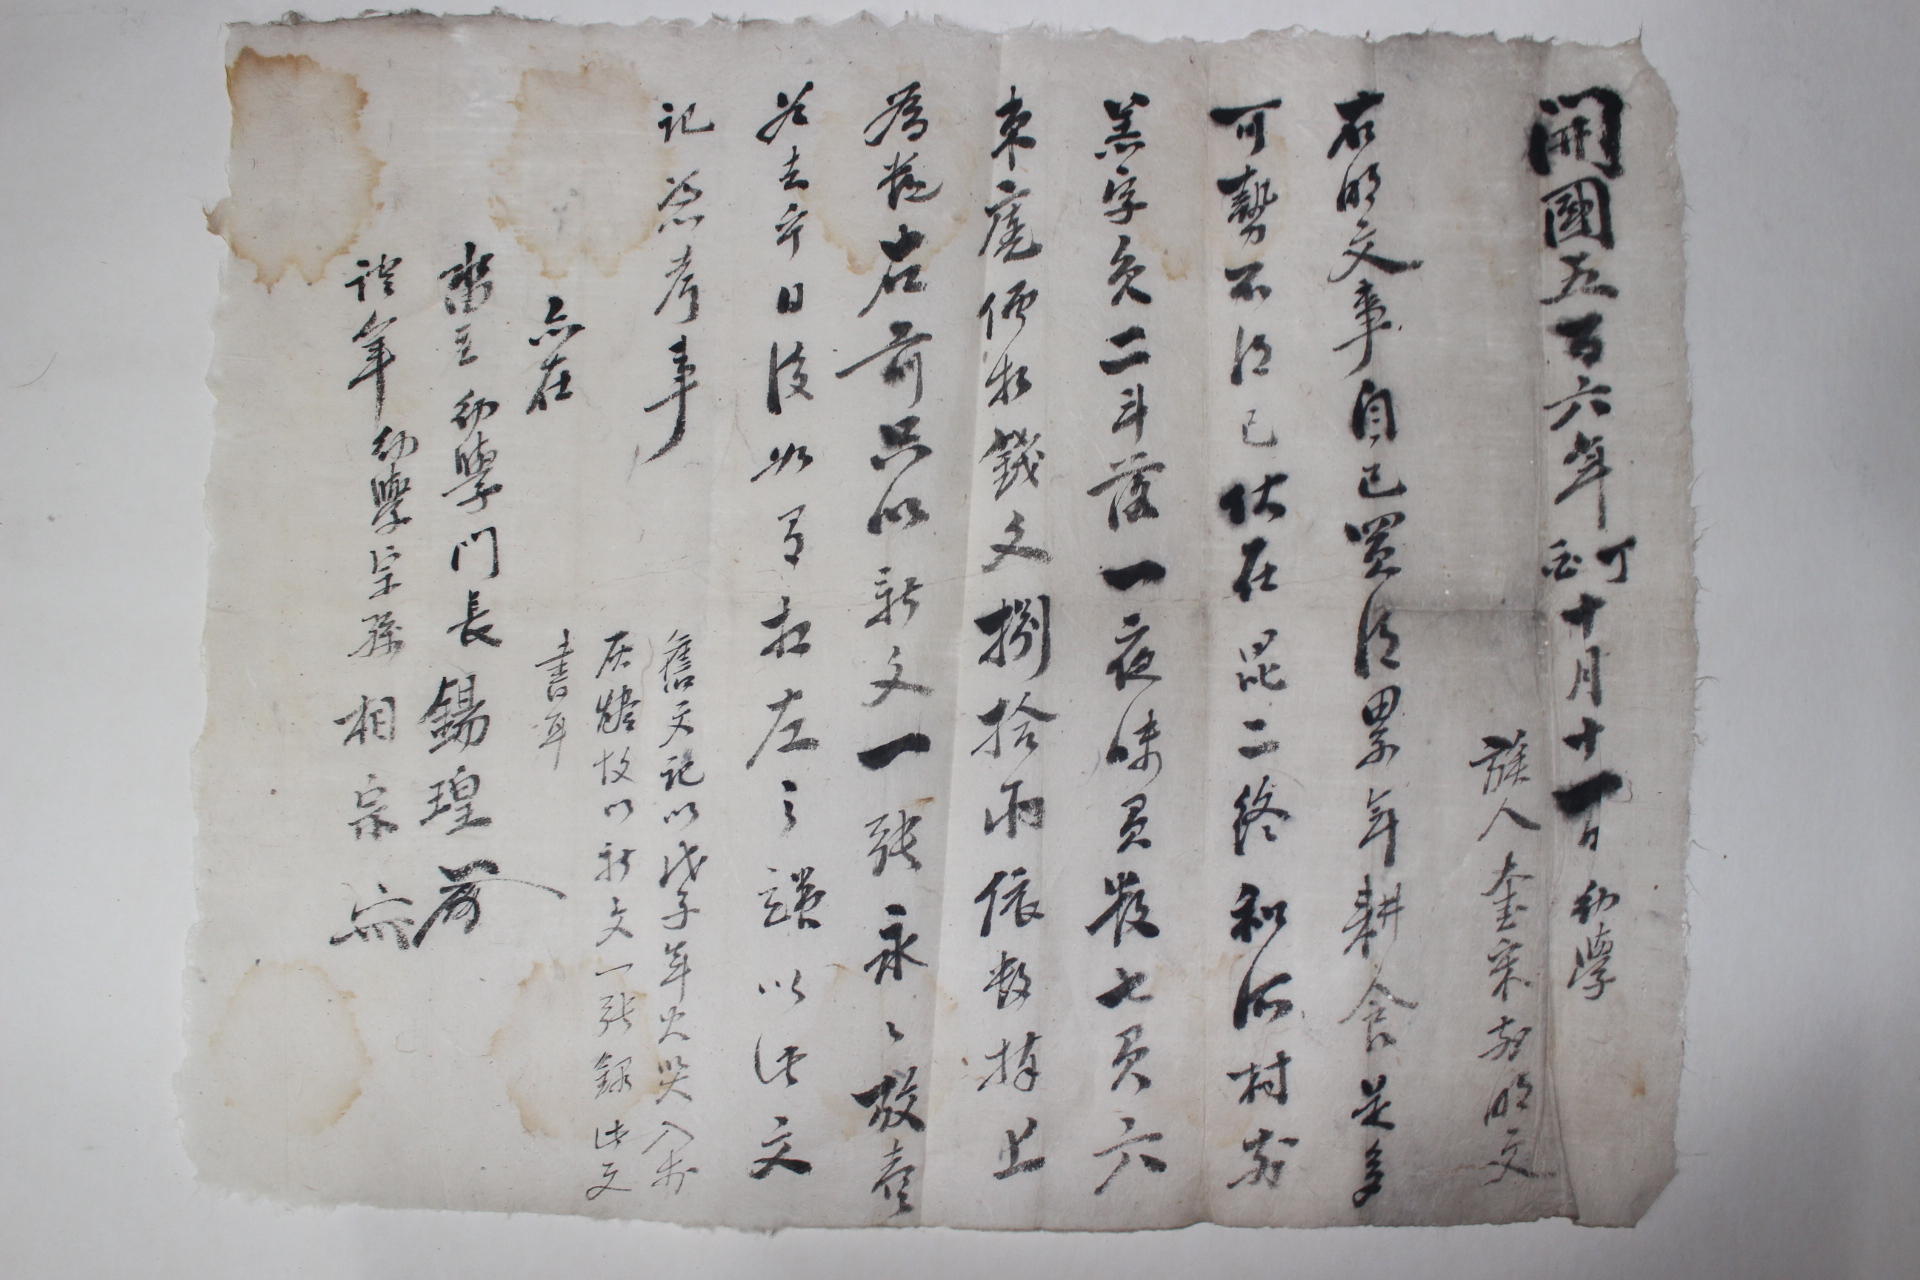 開國五百六年丁酉十月十一日 幼學
族人奎寀前明文
右明文事自己買得累年耕食是多
可勢不得已伏在昆二終和 村前
羔字 二斗落一夜味 數七 六
束 価折錢文捌拾兩依數捧上
爲 右前 以新文一張永〃放賣
去乎日後如有相左之議以此文
記憑考事
亦在
舊文記以戊子年火災入於
灰燼故以新文一張錄此文
書耳
畓主 幼學門長 錫瑝
證筆 幼學宗孫 相宗